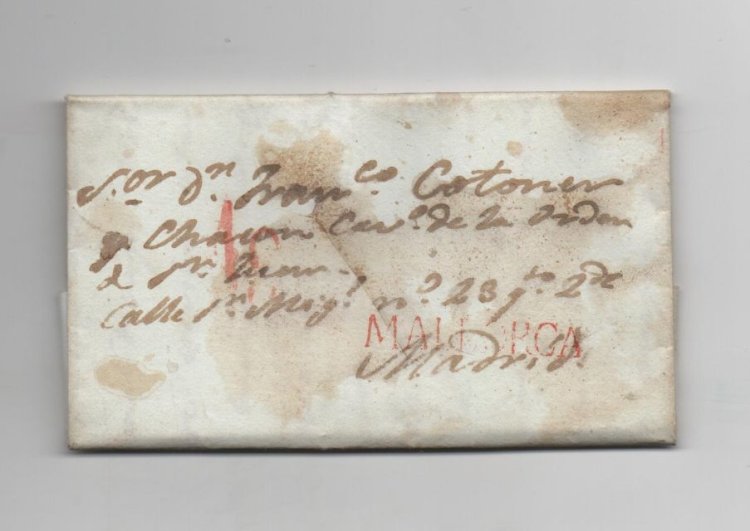 S.or D.n Fran.co Cotoner
y Chacon Cav.o de la Orden
de S.n Juan.
Calle S.n Mig.l n.o 23 q.to 2.do
MALLORCA
Madrid.